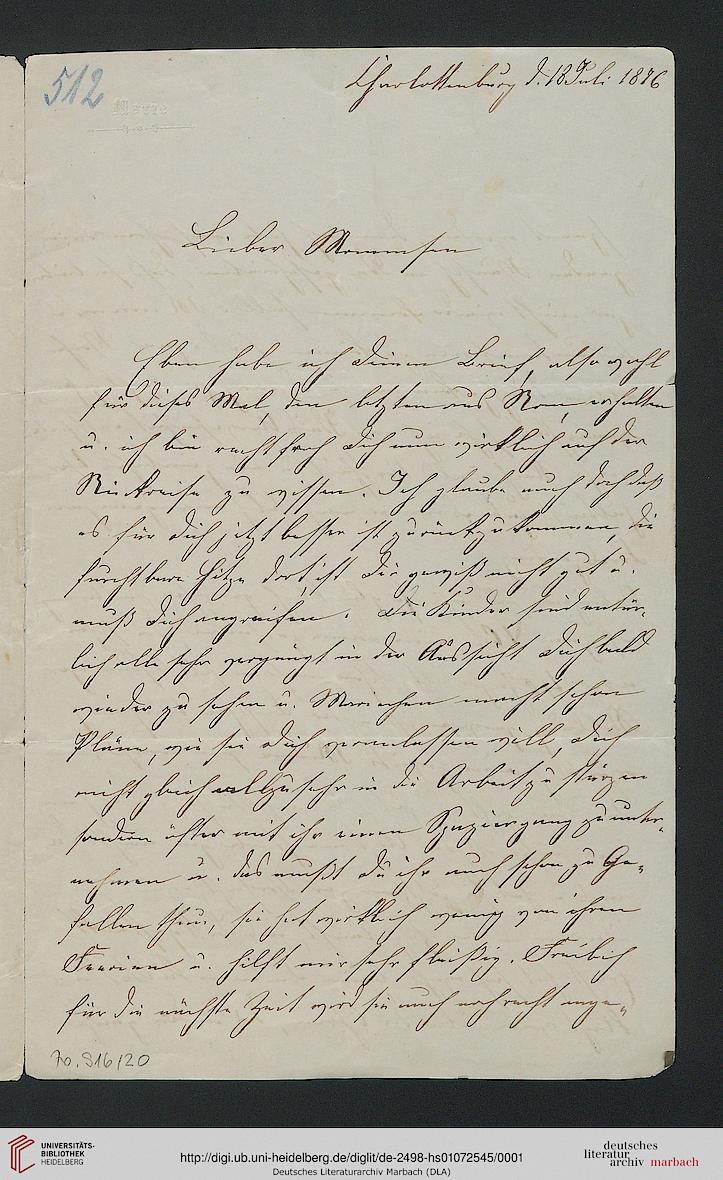 512
Marie
Charlottenburg d. 18 Juli 1876
Lieber Mommsen
Eben habe ich Deinen Brief, also wohl
für dieses Mal, den letzten aus Rom, erhalten
u. ich bin recht froh Dich nun wirklich auf der
Rückreise zu wissen. Ich glaube auch doch daß
es für Dich jetzt besser ist zurückzukommen, die
furchtbare Hitze dort ist Dir gewiß nicht gut u.
muß Dich angreifen. Die Kinder sind natür-
lich alle sehr vergnügt in der Aussicht Dich bald
wieder zu sehen u. Mariechen macht schon
Pläne, wie sie Dich veranlassen will, Dich
nicht gleich allzusehr in die Arbeit zu stürzen
sondern öfter mit ihr einen Spaziergang zu unter-
nehmen u. das mußt Du ihr auch schon zu Ge-
fallen thun, sie hat wirklich wenig von ihren
Ferien u. hilft mir sehr fleißig. Freilich
für die nächste Zeit wird sie auch noch recht ange-
70.516/20
UNIVERSITÄTS-
BIBLIOTHEK
HEIDELBERG
http://digi.ub.uni-heidelberg.de/diglit/de-2498-hs01072545/0001
Deutsches Literaturarchiv Marbach (DLA)
deutsches
literatur
archiv marbach